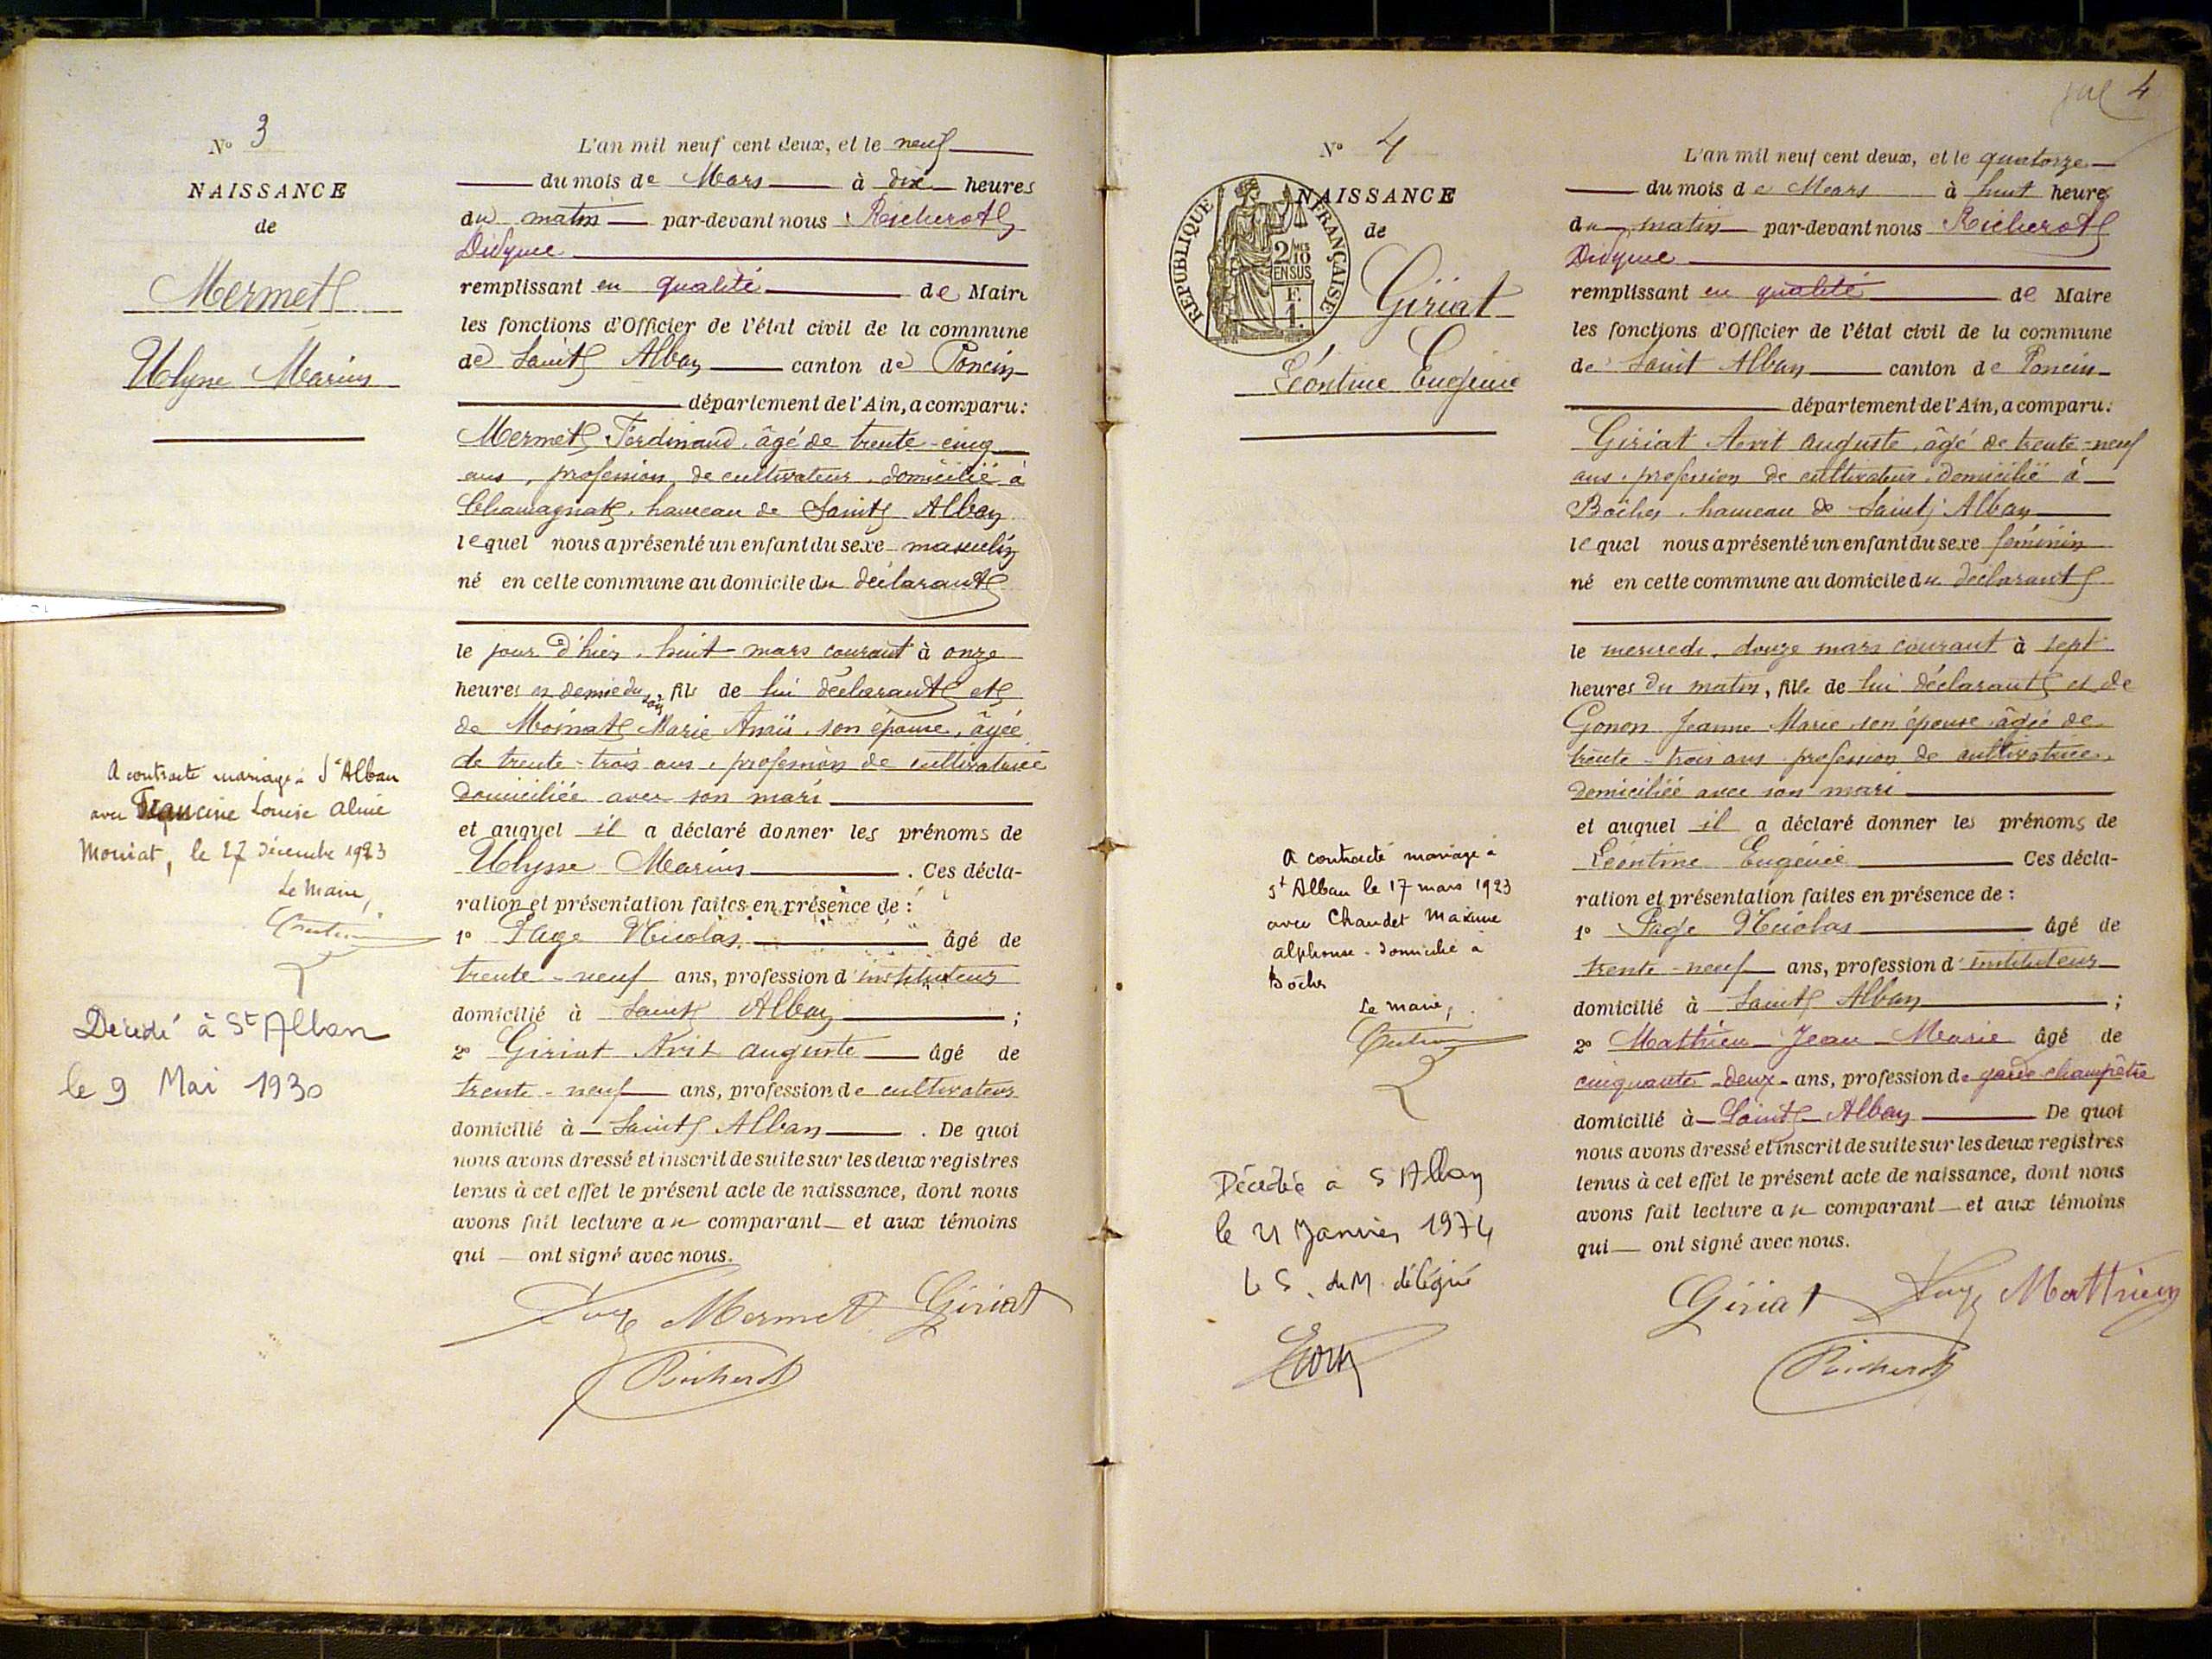 N° 3
NAISSANCE
de
Mermet
Ulysse Marius
A contracté mariage à St Alban
avec Francine Louise Aline
Moniat, le 27 Décembre 1923
Le Maire,
Décédé à St Alban
le 9 Mai 1930
L'an mil neuf cent deux, et le neuf
du mois de Mars à dix heures
du matin par-devant nous Richerot
Didyme
remplissant en qualité de Maire
les fonctions d'Officier de l'état civil de la commune
de Saint Alban canton de Poncin
département de l'Ain, a comparu:
Mermet Ferdinand, âgé de trente-cinq
ans, profession de cultivateur, domicilié à
Chamagnat, hameau de Saint Alban
lequel nous a présenté un enfant du sexe masculin
né en cette commune au domicile du déclarant
le jour d'hier, huit mars courant à onze
heures et demie du soir, fils de lui déclarant et
de Moinat Marie Anaïs, son épouse, âgée
de trente-trois ans, profession de cultivatrice
domiciliée avec son mari
et auquel il a déclaré donner les prénoms de
Ulysse Marius. Ces décla-
ration et présentation faites en présence de :
1° Page Nicolas âgé de
trente-neuf ans, profession d'instituteur
domicilié à Saint Alban ;
2° Giriat Avit Auguste âgé de
trente-neuf ans, profession de cultivateur
domicilié à Saint Alban. De quoi
nous avons dressé et inscrit de suite sur les deux registres
tenus à cet effet le présent acte de naissance, dont nous
avons fait lecture au comparant et aux témoins
qui ont signé avec nous.
Page Mermet Giriat
Richerot
4
N° 4
NAISSANCE
de
RÉPUBLIQUE FRANÇAISE
2/10 MES
EN SUS
F.
1.
Giriat
Léontine Eugénie
A contracté mariage à
St Alban le 17 mars 1923
avec Chaudet Maxime
Alphonse domicilié à
Bôches
Le Maire,
Décédée à St Alban
le 21 Janvier 1974
L S. de M. délégué
L'an mil neuf cent deux, et le quatorze
du mois de Mars à huit heures
du matin par-devant nous Richerot
Didyme
remplissant en qualité de Maire
les fonctions d'Officier de l'état civil de la commune
de Saint Alban canton de Poncin
département de l'Ain, a comparu:
Giriat Avit Auguste, âgé de trente-neuf
ans, profession de cultivateur, domicilié à
Bôches, hameau de Saint Alban
lequel nous a présenté un enfant du sexe féminin
né en cette commune au domicile du déclarant
le mercredi, douze mars courant à sept
heures du matin, fille de lui déclarant et de
Gonon Jeanne Marie son épouse âgée de
trente-trois ans profession de cultivatrice,
domiciliée avec son mari
et auquel il a déclaré donner les prénoms de
Léontine Eugénie Ces décla-
ration et présentation faites en présence de :
1° Page Nicolas âgé de
trente-neuf ans, profession d'instituteur
domicilié à Saint Alban ;
2° Matthieu Jean Marie âgé de
cinquante-deux ans, profession de garde-champêtre
domicilié à Saint Alban De quoi
nous avons dressé et inscrit de suite sur les deux registres
tenus à cet effet le présent acte de naissance, dont nous
avons fait lecture au comparant et aux témoins
qui ont signé avec nous.
Giriat Page Matthieu
Richerot